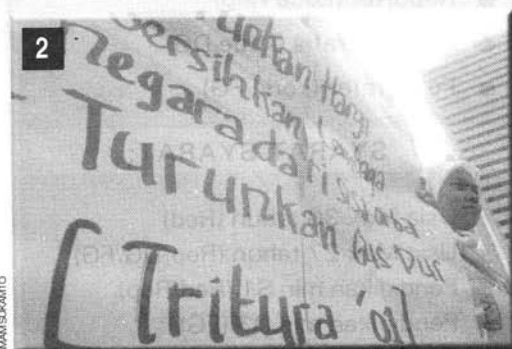 2
Turunkan Harga
Bersihkan Lembaga
Negara dari
Turunkan Gus Dur
[Tritura '01]